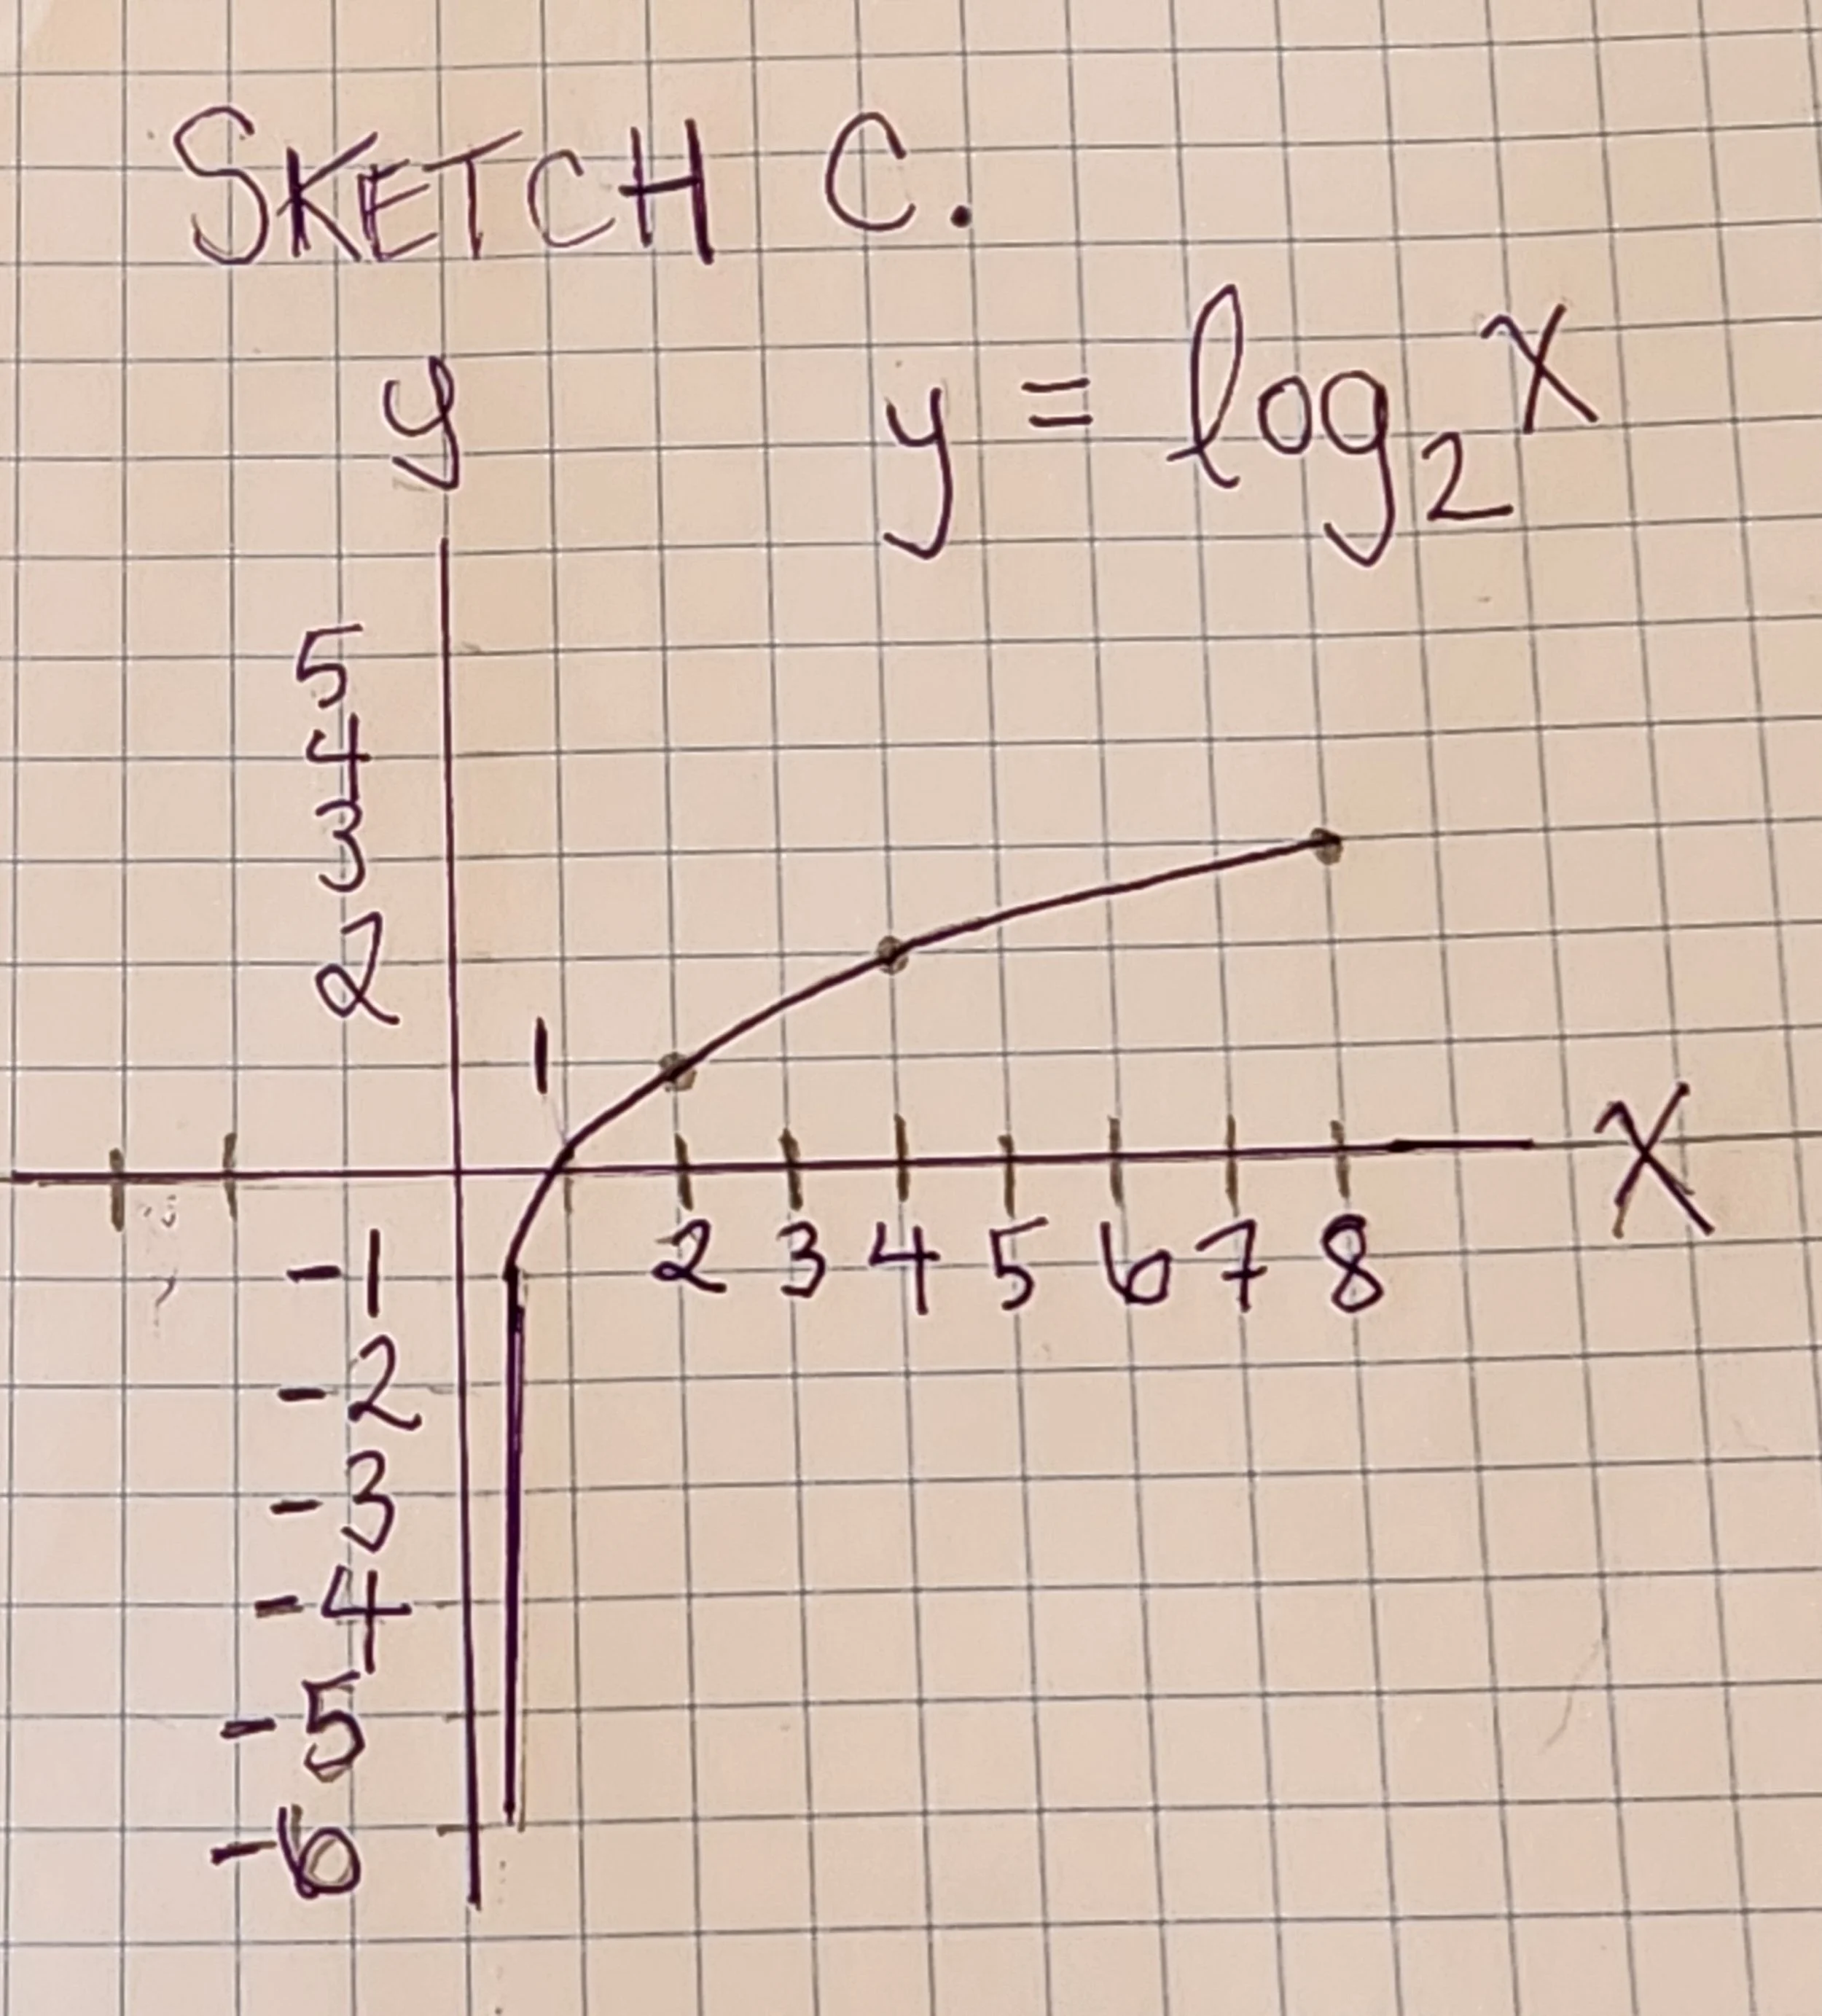 SKETCH C.
y y = log₂x
5
4
3
2
1
x
-1 2 3 4 5 6 7 8
-2
-3
-4
-5
-6